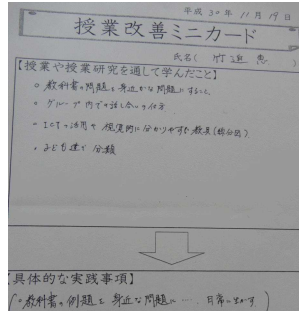 平成30年11月19日
授業改善ミニカード
氏名( 竹迫 恵 )
【授業や授業研究を通して学んだこと】
○教科書の問題を身近かな問題にすること。
○グループ内での話し合いの仕方
○ICTの活用や視覚的に分かりやすい教具(線分図)
○子ども達で分類
【具体的な実践事項】
○教科書の例題を身近な問題に…日常に生かす